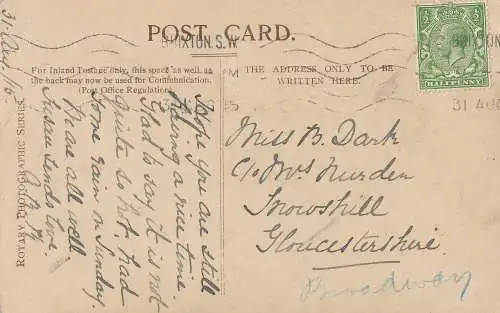 POST CARD.
BRIXTON. S.W.
HALFPENNY
31 AUG
For Inland Postage only, this space as well as
the back may now be used for Communication.
(Post Office Regulation).
THE ADDRESS ONLY TO BE
WRITTEN HERE.
ROTARY PHOTOGRAPHIC SERIES.
31 Aug
Hope you are still
having a nice time.
Glad to say it is not
quite so hot, had
some rain on Sunday.
We are all well
Susan sends love.
Miss B. Dark
C/o Mrs Nurden
Snowshill
Gloucestershire.
Broadway